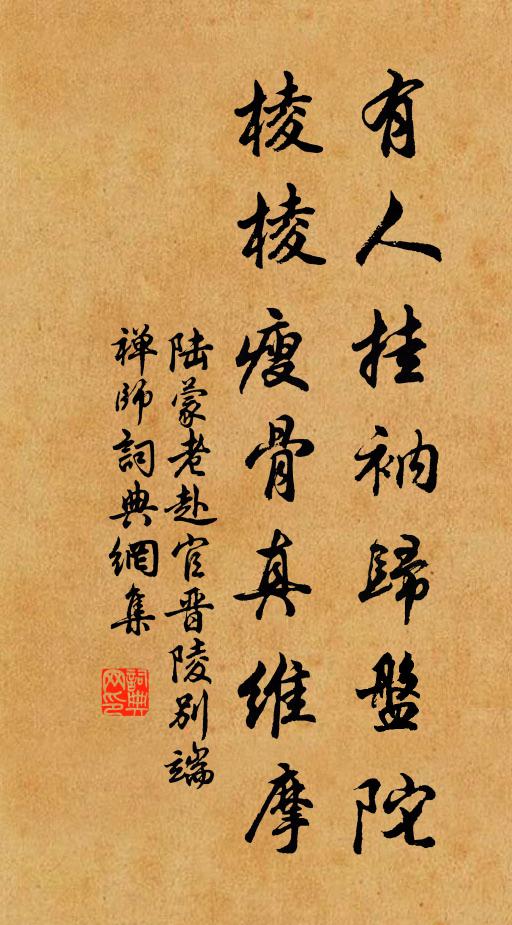 有人挂衲歸盤陀
棱棱瘦骨真維摩
陆蒙老赴官晋陵别端
禅师詞典網集
詞典网印